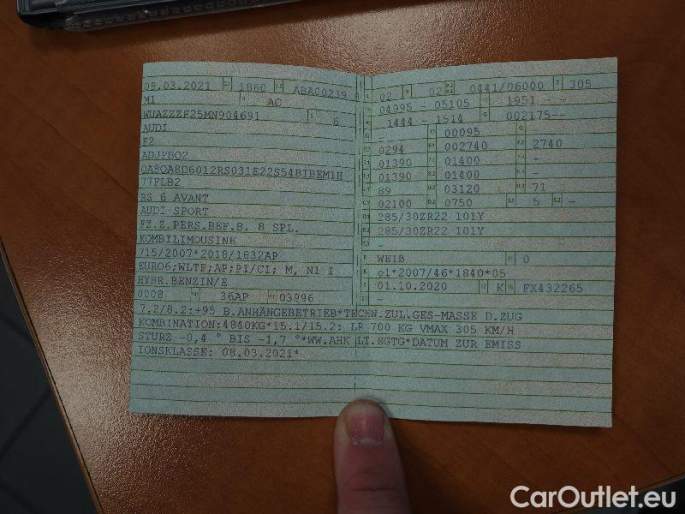 09.03.2021 1860 ABAC0219
M1 AC
WUAZZZF25MN904691 6
AUDI
F2
ADJPBQ2
77FLB2
RS 6 AVANT
AUDI SPORT
FZ.Z.PERS.BEF.B. 8 SPL.
KOMBILIMOUSINE
715/2007*2018/1832AP
EURO6;WLTP;AP;PI/CI; M, N1 I
HYBR.BENZIN/E
0008 36AP 03996
02 02 0441/06000 305
04995 - 05105 1951 - -
1444 - 1514 002175--
- - 00095 -
0294 002740 2740
01390 01400 -
01390 01400 -
89 03120 71
02100 0750 5 -
285/30ZR22 101Y
285/30ZR22 101Y
-
WEIß 0
e1*2007/46*1840*05
01.10.2020 K FX432265
7.2/8.2:+95 B.ANHÄNGEBETRIEB*TECHN.ZUL.GES-MASSE D.ZUG
KOMBINATION:4840KG*15.1/15.2: LR 700 KG VMAX 305 KM/H
STURZ -0,4 ° BIS -1,7 °*WW.AHK LT.EGTG*DATUM ZUR EMISS
IONSKLASSE: 08.03.2021*
CarOutlet.eu